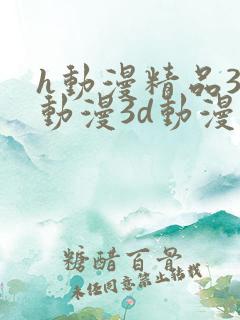 h動漫精品3
動漫3d動漫
糖醋百骨
未任同意禁止转载